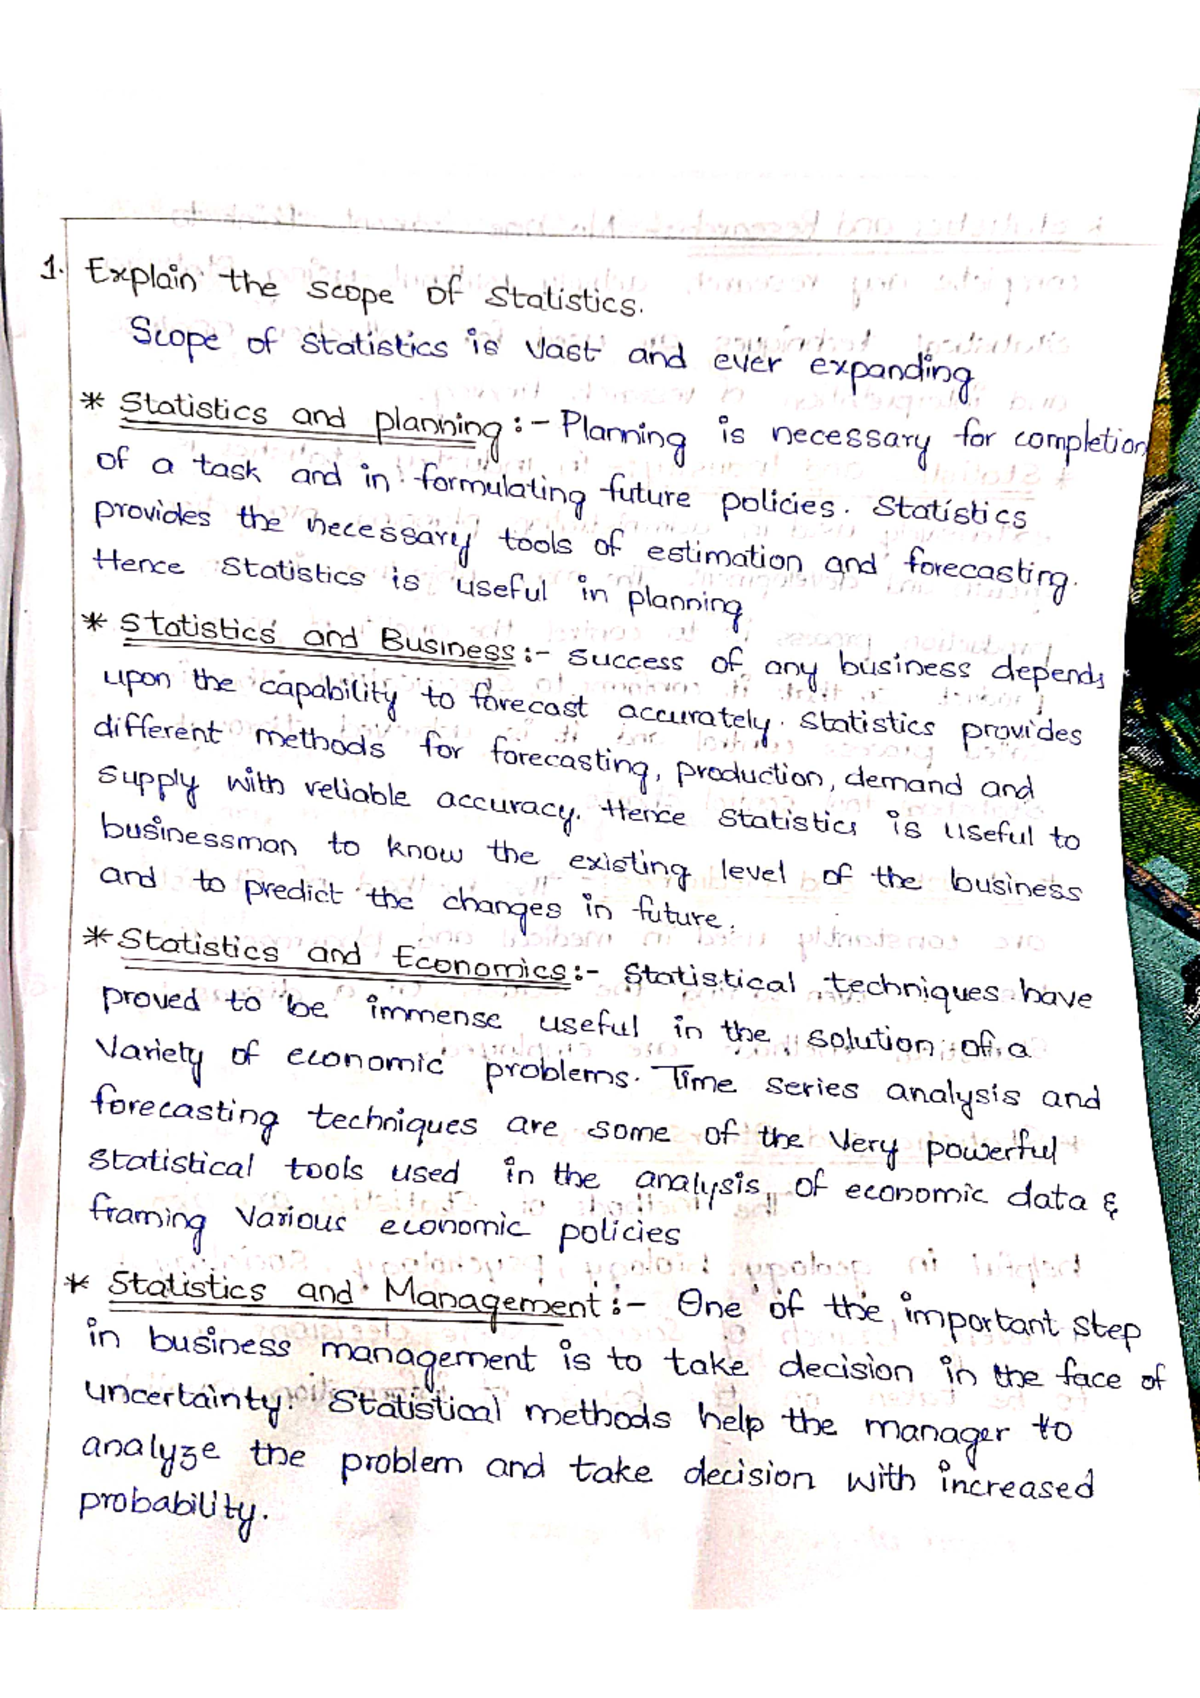 1. Explain the scope of statistics.
Scope of statistics is vast and ever expanding
* Statistics and planning :- Planning is necessary for completion
of a task and in formulating future policies. Statistics
provides the necessary tools of estimation and forecasting.
Hence Statistics is useful in planning
* Statistics and Business :- Success of any business depends
upon the capability to forecast accurately. Statistics provides
different methods for forecasting, production, demand and
supply with reliable accuracy. Hence Statistics is useful to
businessman to know the existing level of the business
and to predict the changes in future.
* Statistics and Economics :- Statistical techniques have
proved to be immense useful in the solution of a
Variety of economic problems. Time series analysis and
forecasting techniques are some of the very powerful
statistical tools used in the analysis of economic data &
framing various economic policies
* Statistics and Management :- One of the important step
in business management is to take decision in the face of
uncertainty. Statistical methods help the manager to
analyze the problem and take decision with increased
probability.